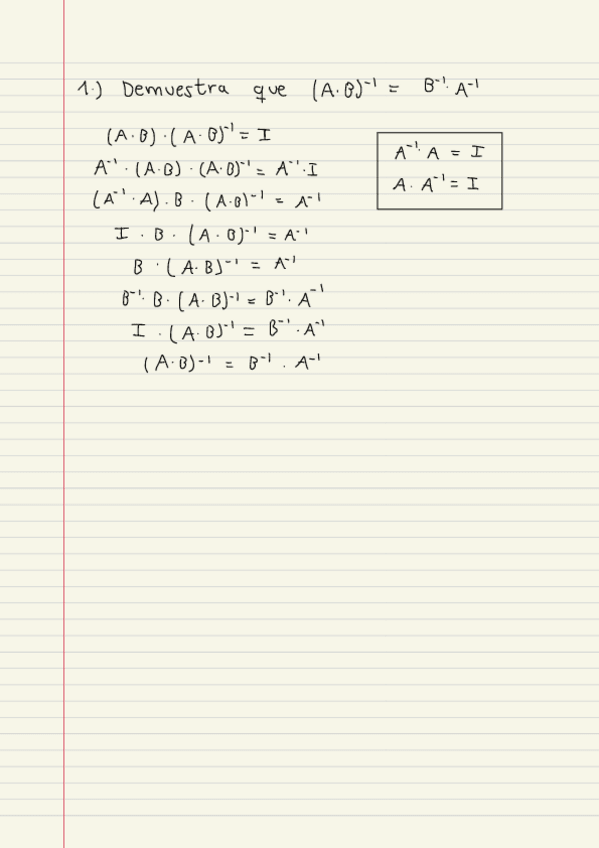 1.) Demuestra que (A·B)⁻¹ = B⁻¹·A⁻¹
(A·B)·(A·B)⁻¹ = I
A⁻¹·(A·B)·(A·B)⁻¹ = A⁻¹·I
(A⁻¹·A)·B·(A·B)⁻¹ = A⁻¹
I·B·(A·B)⁻¹ = A⁻¹
B·(A·B)⁻¹ = A⁻¹
B⁻¹·B·(A·B)⁻¹ = B⁻¹·A⁻¹
I·(A·B)⁻¹ = B⁻¹·A⁻¹
(A·B)⁻¹ = B⁻¹·A⁻¹
A⁻¹·A = I
A·A⁻¹ = I